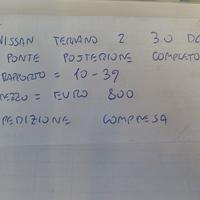 NISSAN TERRANO 2 3.0 DC
PONTE POSTERIORE COMPLETO
RAPPORTO = 10-39
PREZZO = EURO 800
SPEDIZIONE COMPRESA